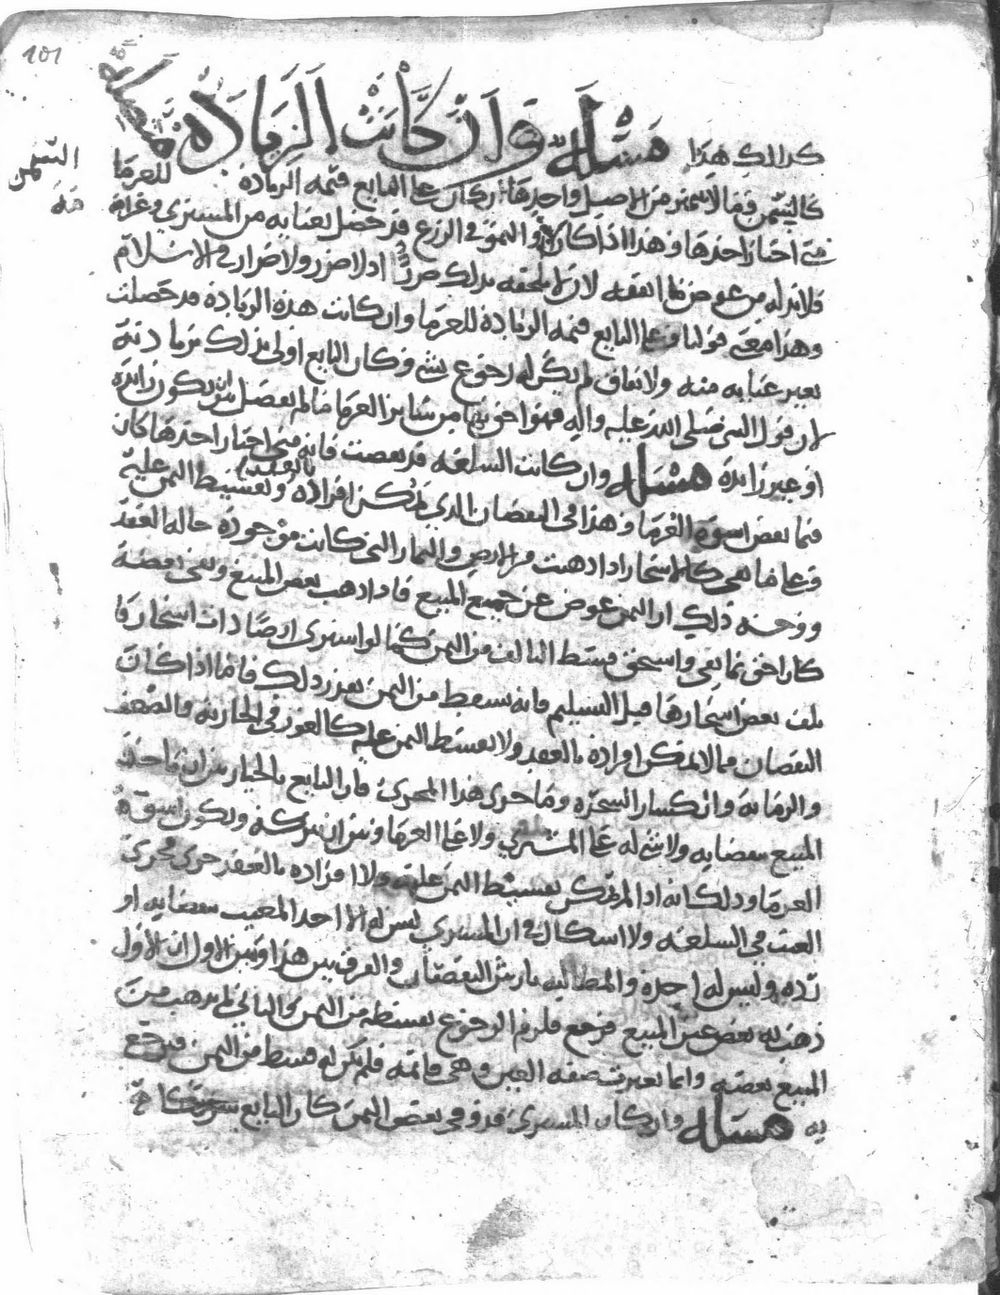 101
كذلك هذا مسئله وان كانت الزيادة متصلة
كالسمن فيما لا يتميز من الاصل واحدها كان على البايع قيمة الزيادة للغرما
السمن
متى اختار احدها وهذا اذا كان والنمو في الزرع قد حصل بعنايه من المشتري وغرامه
فلا بد له من عوض ما انفقه لان لا يلحقه بذلك ضرر اذ لا ضرر ولا ضرار في الاسلام
وهذا معنى قولنا وعلى البايع قيمة الزيادة للغرما وان كانت هذه الزيادة قد حصلت
بغير عنايه منه ولا انفاق لم يكن له رجوع بشي وكان البايع اولى بذلك
لان قول النبي صلى الله عليه واله فهو احق بها من سائر الغرما ما لم يفصل بين ان يكون زايدة
او غير زايدة مسئله وان كانت السلعه قد نقصت فانه متى اختار احدها كان
فيما نقص اسوة الغرما وهذا في النقصان الذي يمكن افراده بالعقد وتقسيط الثمن عليه
وعلى ما هي كالاشجار اذا ذهبت من الارض والثمار التي كانت موجودة حاله العقد
ووجه ذلك ان الثمن عوض عن جميع المبيع فاذا ذهب بعض المبيع وبقي بعضه
كان احق بما بقي واستحق قسط التالف من الثمن كما لو اشترى ارضا ذات اشجار فا
تلف بعض اشجارها قبل التسليم فانه يسقط من الثمن بقدر ذلك فاما اذا كان
النقصان مما لا يمكن افراده بالعقد ولا تقسيط الثمن عليه كالعور في الجارية والضعف
والزمانة وانكسار الشجرة وما جرى هذا المجرى فان البايع بالخيار بين ان ياخذ
المبيع بنقصانه ولا شي له على المشتري ولا على الغرما وبين ان يتركه ويكون اسوة
الغرما وذلك انه اذا لم يمكن تقسيط الثمن عليه ولا افراده بالعقد جرى مجرى
العيب في السلعه ولا اشكال في ان المشتري ليس له الا اخذ المعيب بنقصانه او
رده وليس له اخذه والمطالبه بارش النقصان والفرق بين هذا وبين الاول ان الاول
ذهب به بعض عين المبيع فرجع فلزم الرجوع بقسطه من الثمن والثاني لم يذهب من
المبيع بعضه وانما تغيرت صفة العين وهي قائمه فلم يكن له قسط من الثمن فيرجع
به مسئله وان كان المشتري قد وفى بعض الثمن كان البايع